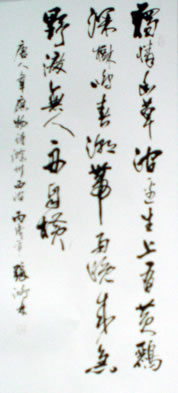 獨憐幽草澗邊生上有黃鸝
深樹鳴春潮帶雨晚來急
野渡無人舟自橫
唐人韋應物詩滁州西澗 丙戌年 張